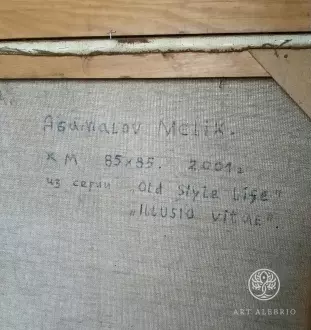 Agamalov Melik.
х м 85x85. 2001г
из серии „Old Style Life"
„ILLUSIO VITAE".
ART ALEBRIO